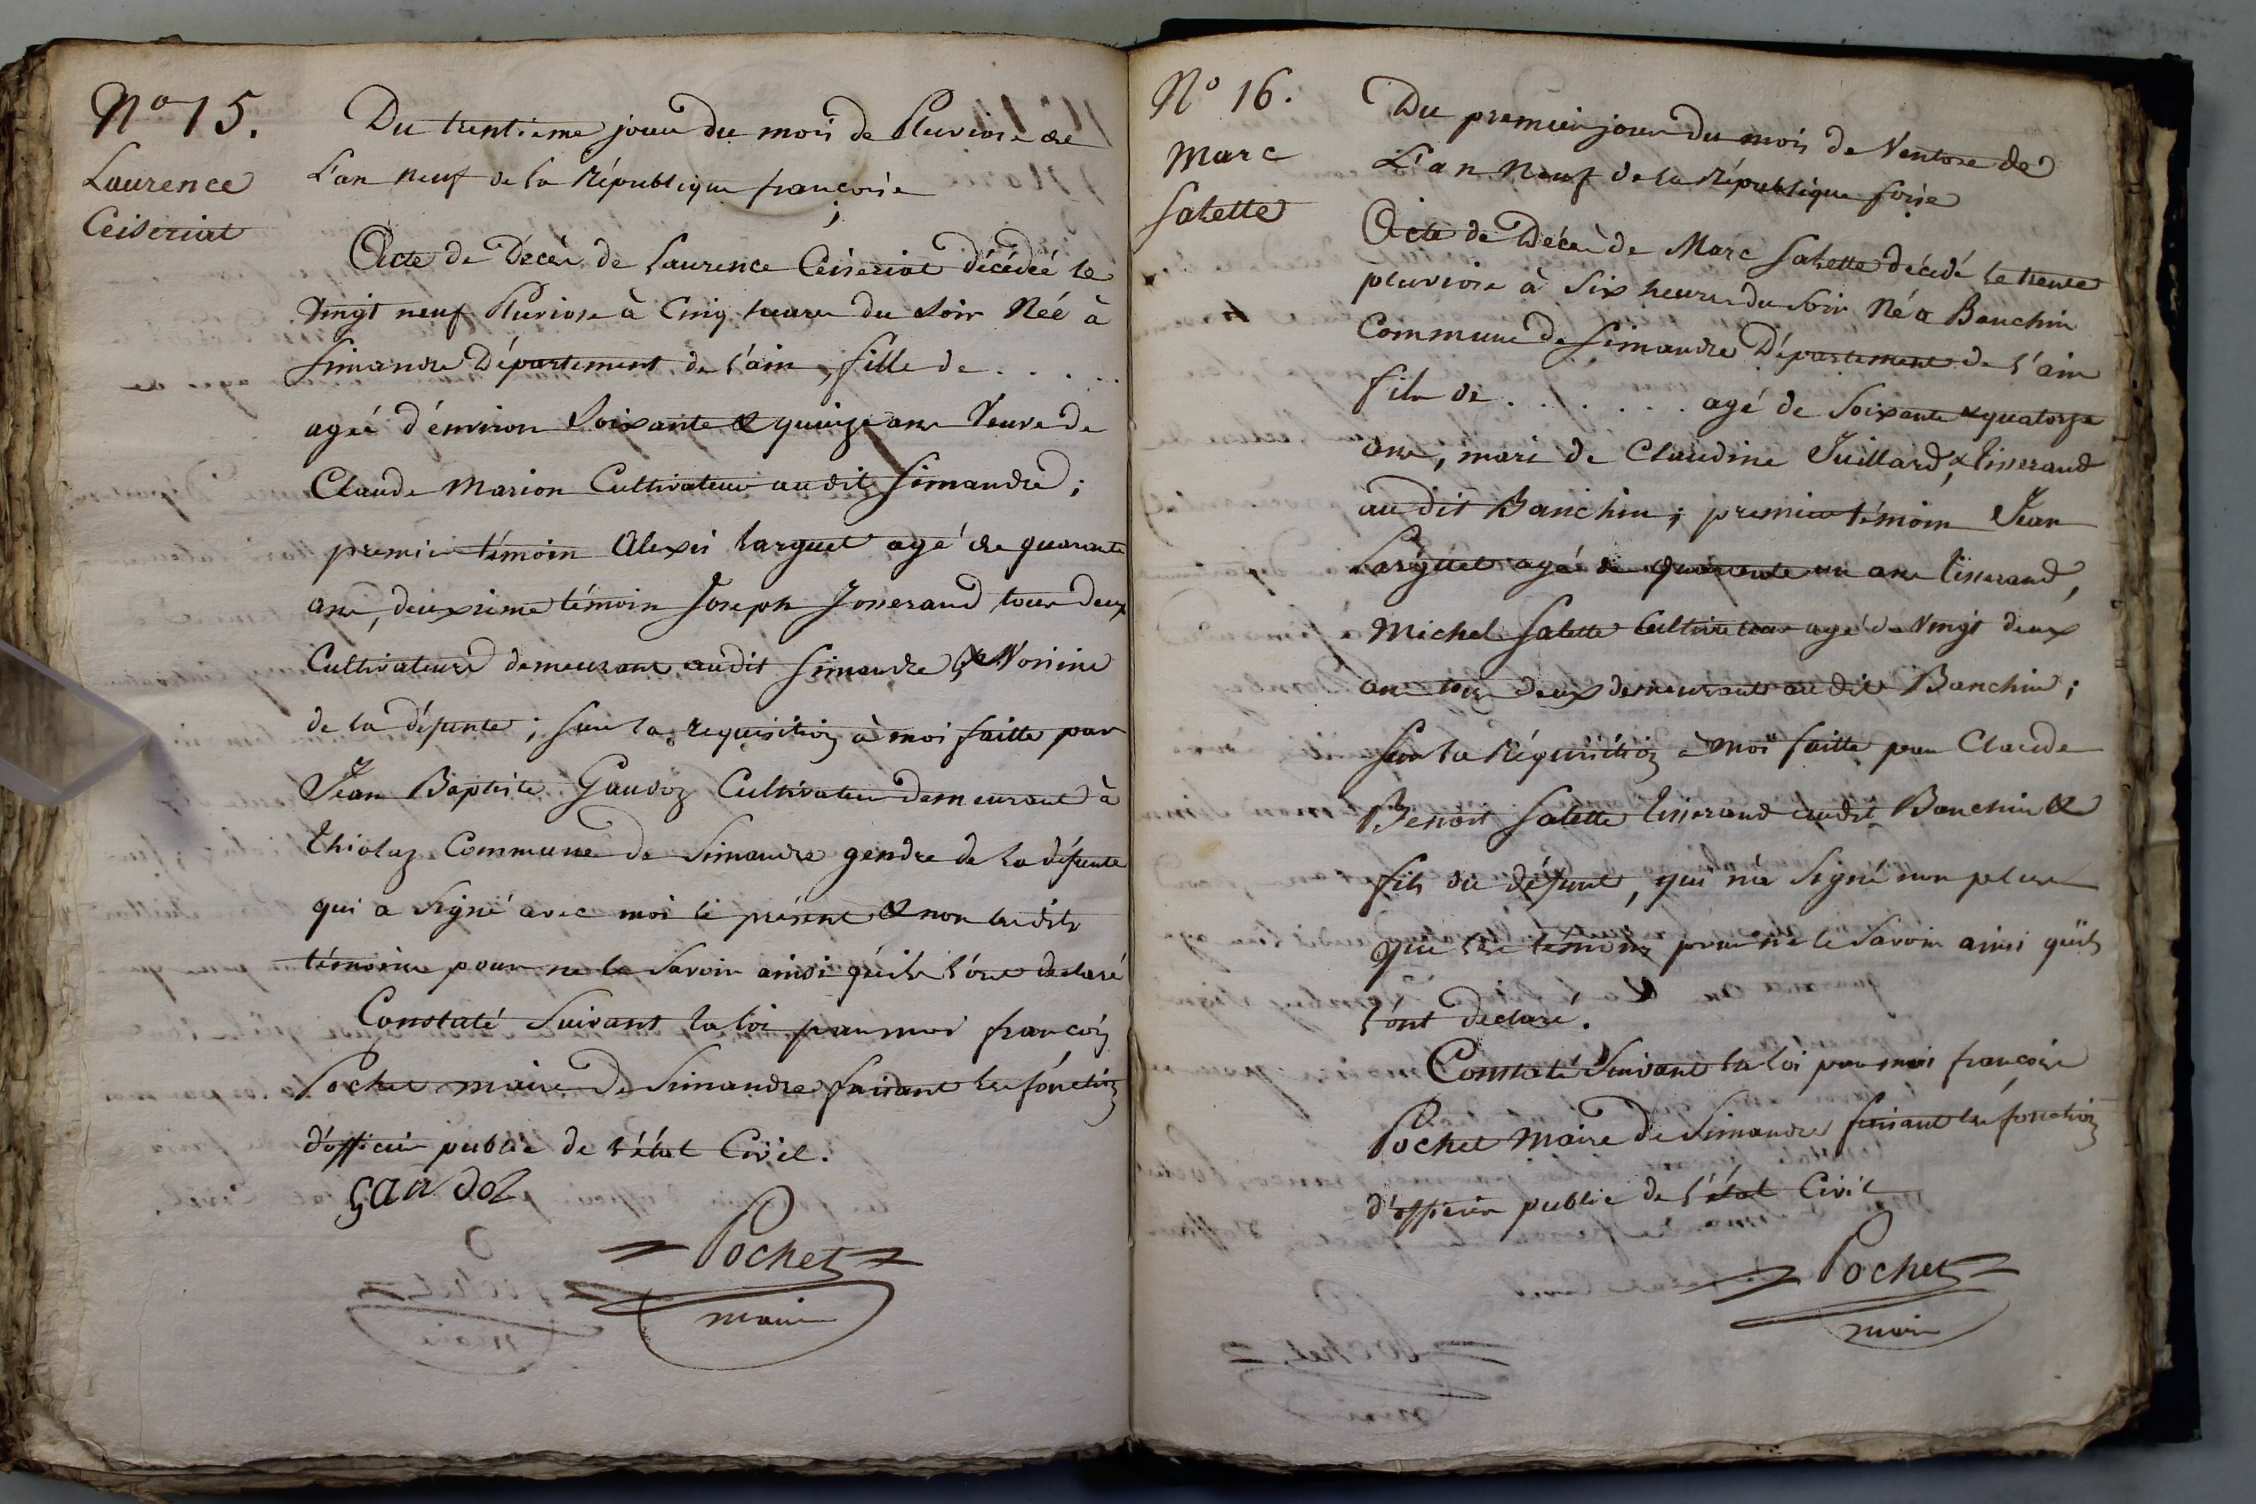 Nº 15.
Laurence
Ceiseriat
Du trentieme jour du mois de Pluviose de
L'an neuf de la République françoise
Acte de Décès de Laurence Ceiseriat décédéé le
Vingt neuf Pluviose à Cinq heures du Soir Néé à
Simandre Département de l'ain, fille de . . . . .
ageé d'environ Soixante & quinze ans Veuve de
Claude Marion Cultivateur audit Simandre ;
premier témoin Alexis Larguet agé de quarante
ans, deuxsieme témoin Joseph Josserand tous deux
Cultivateurs demeurans audit Simandre & Voisins
de la défunte ; sur la requisition à moi faitte par
Jean Baptiste Gaudoz Cultivateur demeurant à
Thiolaz Commune de Simandre gendre de la défunte
qui a signé avec moi le présent & non lesdits
témoins pour ne le Savoir ainsi qu'ils l'ont declaré
Constaté Suivant la loi par moi françois
Pochet maire de Simandre faisant les fonctions
d'officier public de l'état Civil.
gaudoz
Pochet
maire
Nº 16.
Marc
Salette
Du premier jour du mois de Ventose de
L'an Neuf de la République foise
Acte de Décès de Marc Salette décedé le trente
pluviose à Six heures du Soir Né a Banchin
Commune de Simandre Département de l'ain
fils de . . . . . . . agé de Soixante & quatorze
ans, mari de Claudine Juillard, & tisserand
audit Banchin ; premier témoin Jean
Larguet agé de quarante un ans tisserand,
Michel Salette Cultivateur agé de Vingt deux
ans tous deux demeurants audit Banchin ;
sur la Réquisition à moi faitte par Claude
Benoit Salette tisserand audit Banchin &
fils du défunt, qui n'a Signé non plus
que les témoins pour ne le Savoir ainsi qu'ils
l'ont declaré.
Constaté Suivant la loi par moi françois
Pochet Maire de Simandre faisant les fonctions
d'officier public de l'état Civil
Pochet
maire